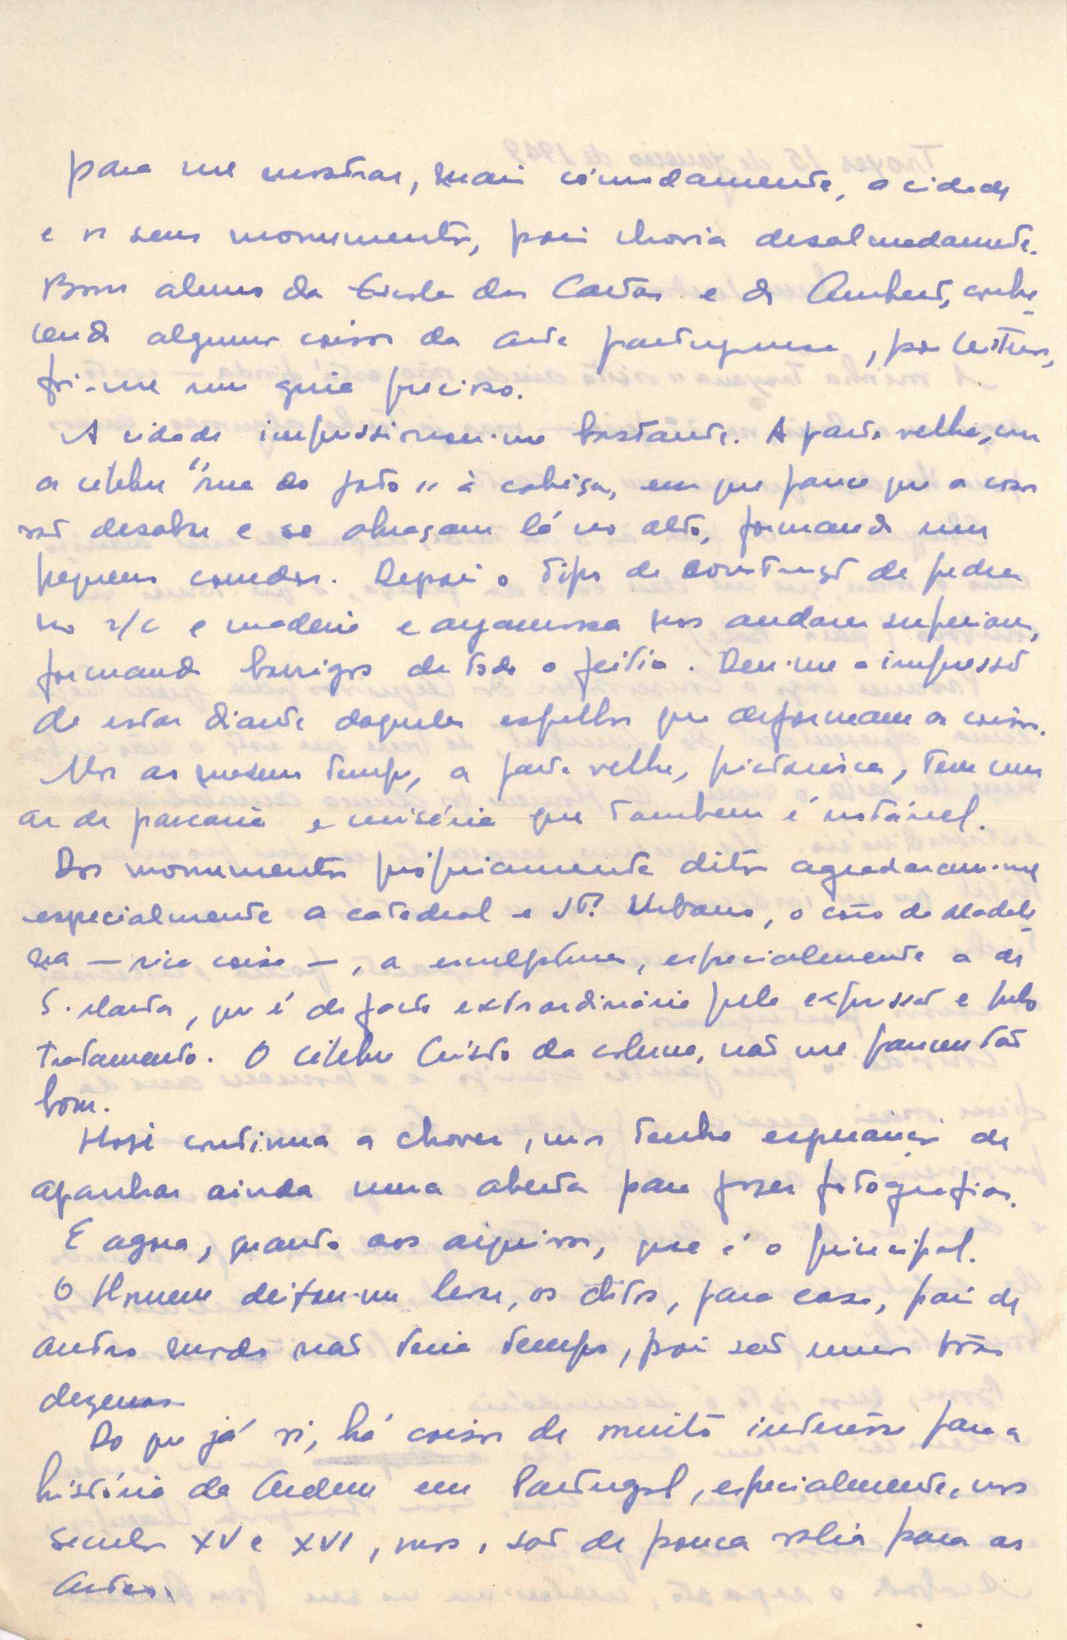 para me mostrar, mais cómodamente, a cidade
e os seus monumentos, pois chovia desalmadamente.
Bom aluno da Escola das Cartas e de Aubert, conhe-
cendo algumas coisas da arte portuguesa, por leituras,
foi-me um guia precioso.
A cidade impressionou-me bastante. A parte velha, com
a célebre "rua do gato" à cabeça, em que parece que a casa
se abraçam lá no alto, formando um
pequeno corredor. Depois o tipo de construção de pedra
no r/c e madeira e argamassa nos andares superiores,
formando barrigas de todo o feitio. Deu-me a impressão
de estar diante daqueles espelhos que deformam as coisas.
Mas ao mesmo tempo, a parte velha, pictoresca, tem um
ar de porcaria e miséria que tambem é notável.
Dos monumentos própriamente ditos agradaram-me
especialmente a catedral e Stº Urbano, o côro da Madale-
na — rica coisa —, a esculptura, especialmente a de
S. Marta, que é de facto extraordinária pela expressão e pelo
tratamento. O célebre Cristo da coluna, não me pareceu tão
bom.
Hoje continua a chover, mas tenho esperança de
apanhar ainda uma aberta para fazer fotografias.
E agora, quanto aos arquivos, que é o principal.
O Homem deixou-me levar, os ditos, para casa, pois de
outro modo não teria tempo, pois são umas boas
dezenas
Do que já vi, há coisas de muito interêsse para a
história da Ordem em Portugal, especialmente, nos
séculos XV e XVI, mas, são de pouca valia para as
Artes.